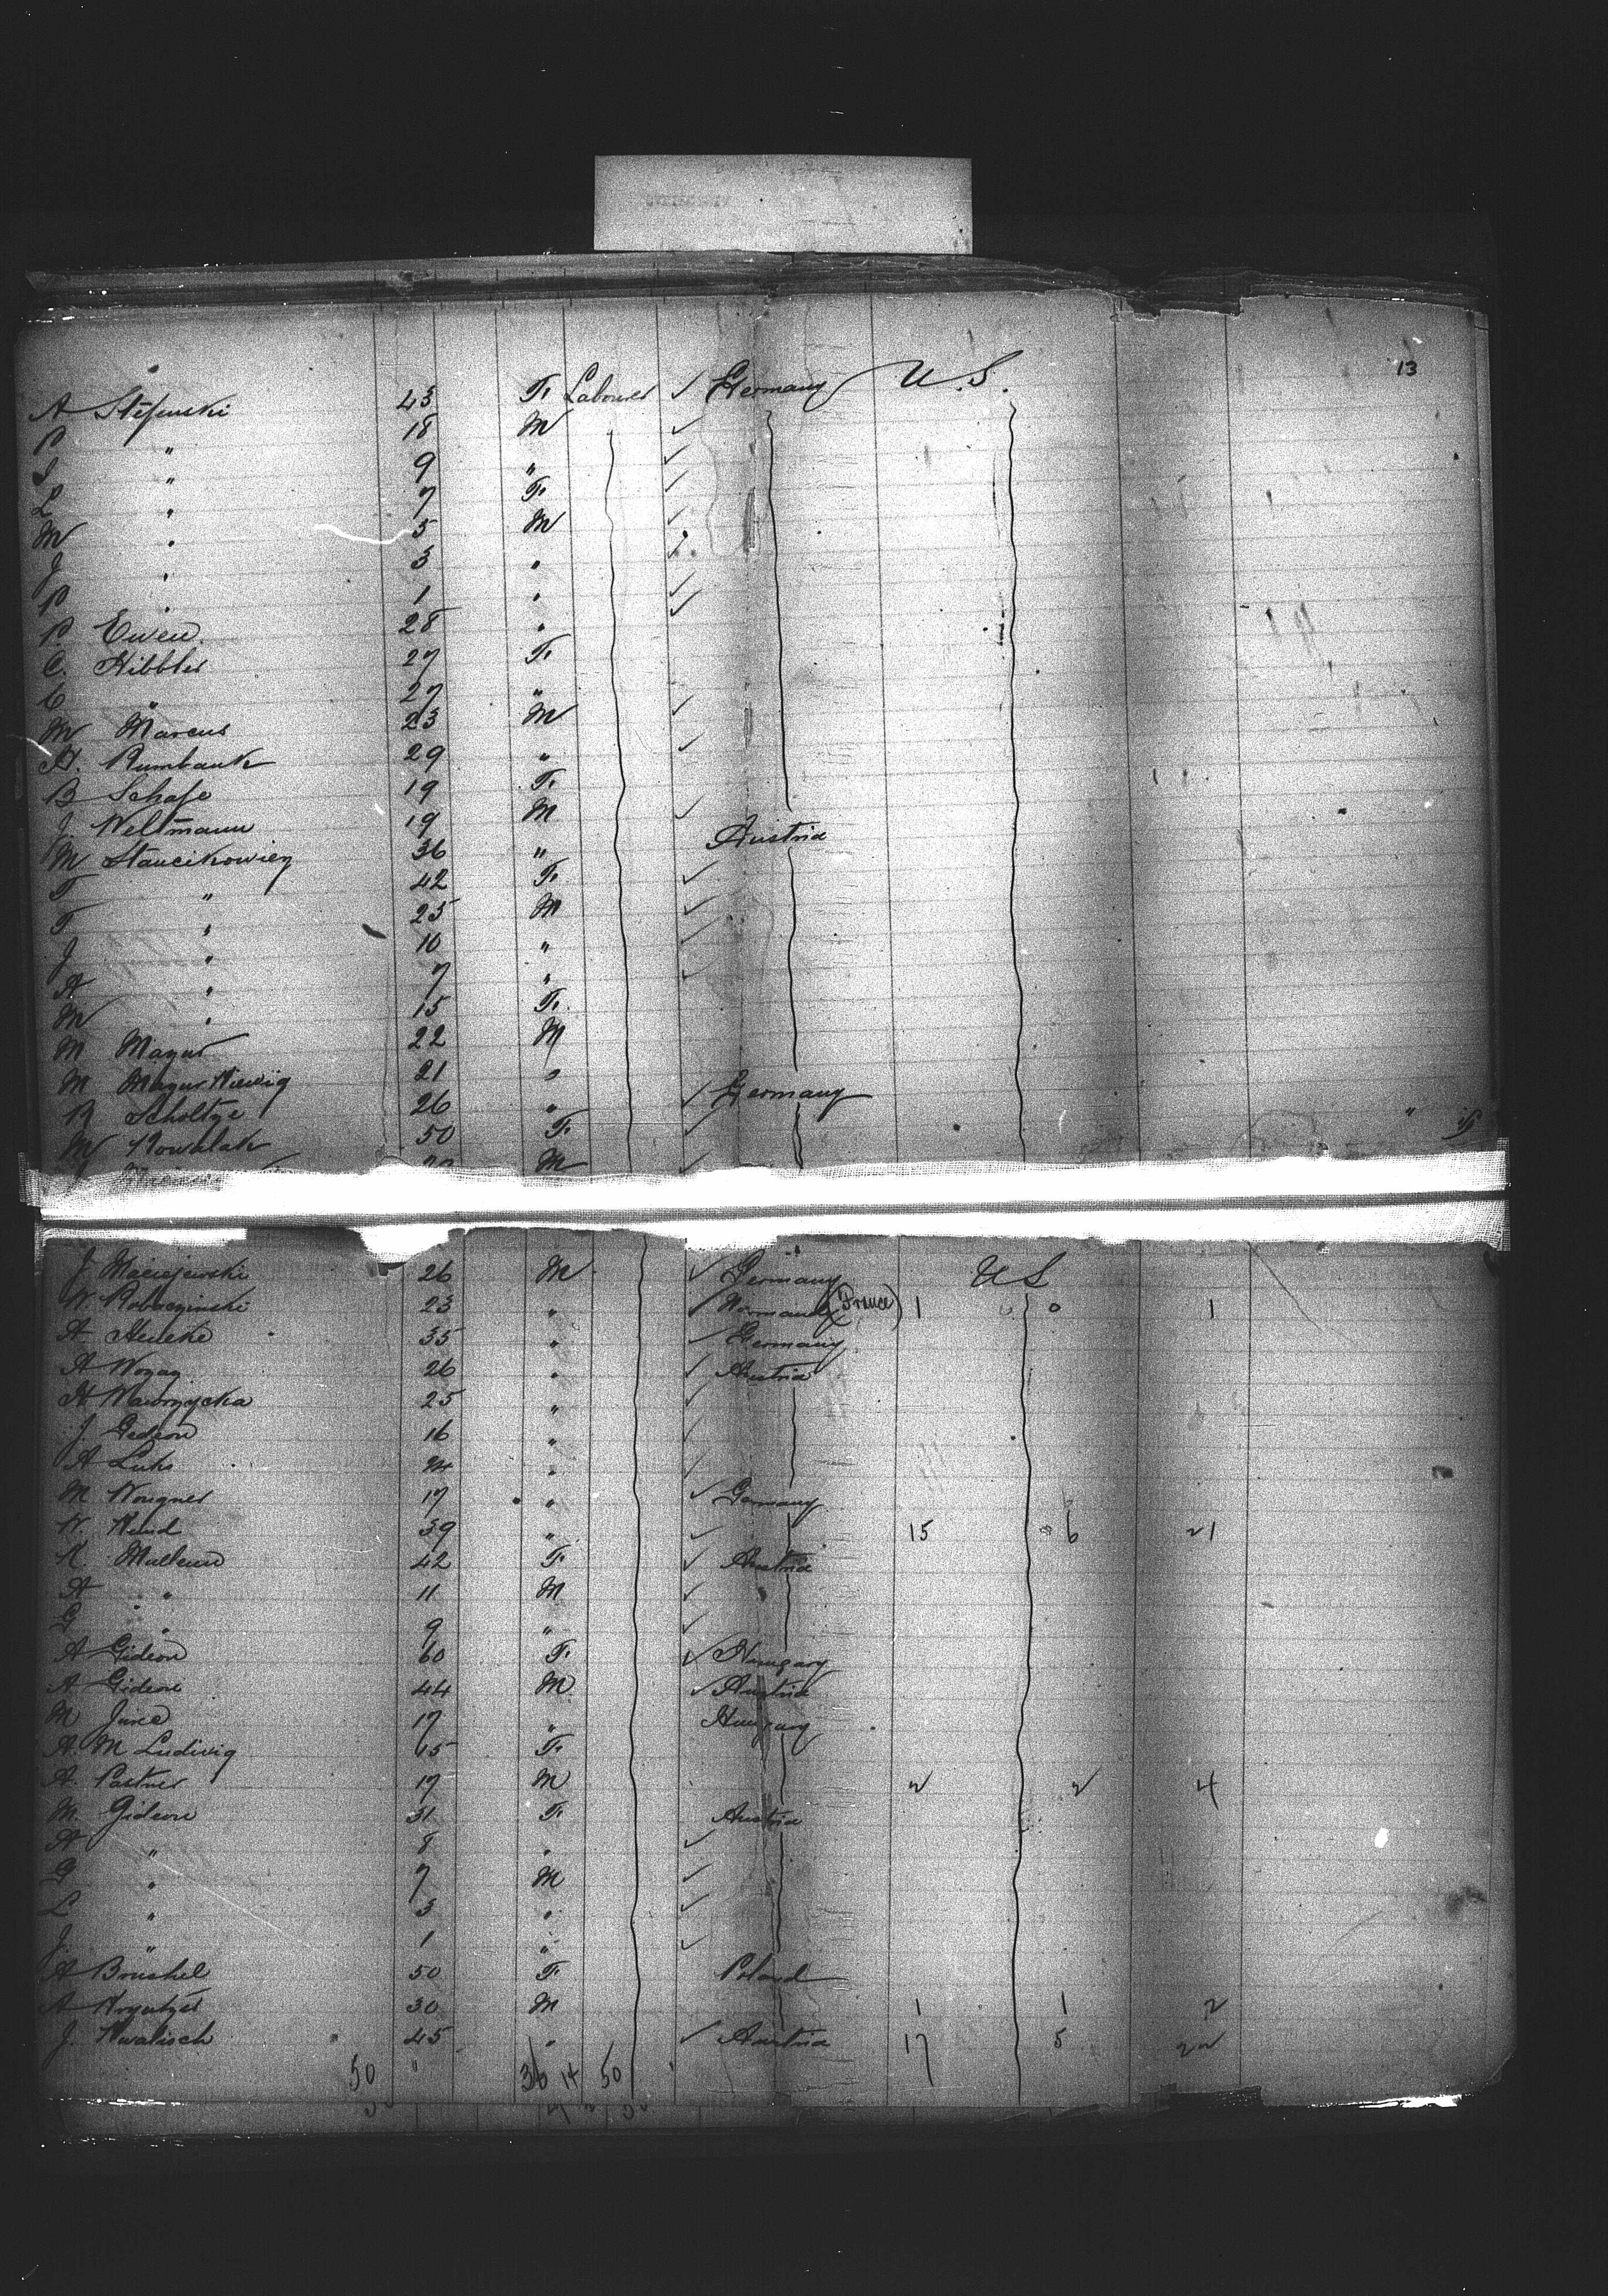 13
A Stefunski 43 F. Labourer ✓ Germany U.S.
P " 18 M ✓
S " 9 " ✓
L " 7 F. ✓
M " 5 M ✓
J " 3 " ✓
P " 1 " ✓
P. Ewen 28 " ✓
C. Hibbler 27 F.
C " 27 "
M Marcus 23 M ✓
H. Rumbauk 29 " ✓
B Schafe 19 F.
J. Weltmann 19 M ✓
M Stancikowiez 36 " Austria
F " 42 F. ✓
F " 25 M ✓
J " 10 " ✓
A " 7 " ✓
M " 15 F.
M Mazur 22 M
M Mazur 21 "
R Scholtze 26 " ✓ Germany
M Nowalak 50 F. ✓
M ✓
J Maciejewski 26 M ✓ Germany U S
W. 23 " ✓ (France) 1 0 1
A Henke 35 " ✓ Germany
A Wozag 26 " ✓ Austria
A Nawrzycka 25 " ✓
J Gedeon 16 " ✓
A Luks " ✓
M Wougner 17 " ✓ Germany
W. Wend 39 " ✓ 15 6 21
K. Mullenn 42 F. ✓ Austria
A " 11 M ✓
G " 9 " ✓
A Gideon 60 F. ✓ Hungary
A Gideon 44 M ✓ Austria
M Jurca 17 " Hungary
A. M Ludwig 15 F.
A. Pastner 17 M 2 2 4
M. Gideon 31 F. Austria
A " 8 " ✓
G " 7 M ✓
L " 3 " ✓
J. " 1 " ✓
A Bruskel 50 F. Poland
A 30 M 1 1 2
J. Kwalisch 45 " ✓ Austria 17 5 22
50 " 36 14 50